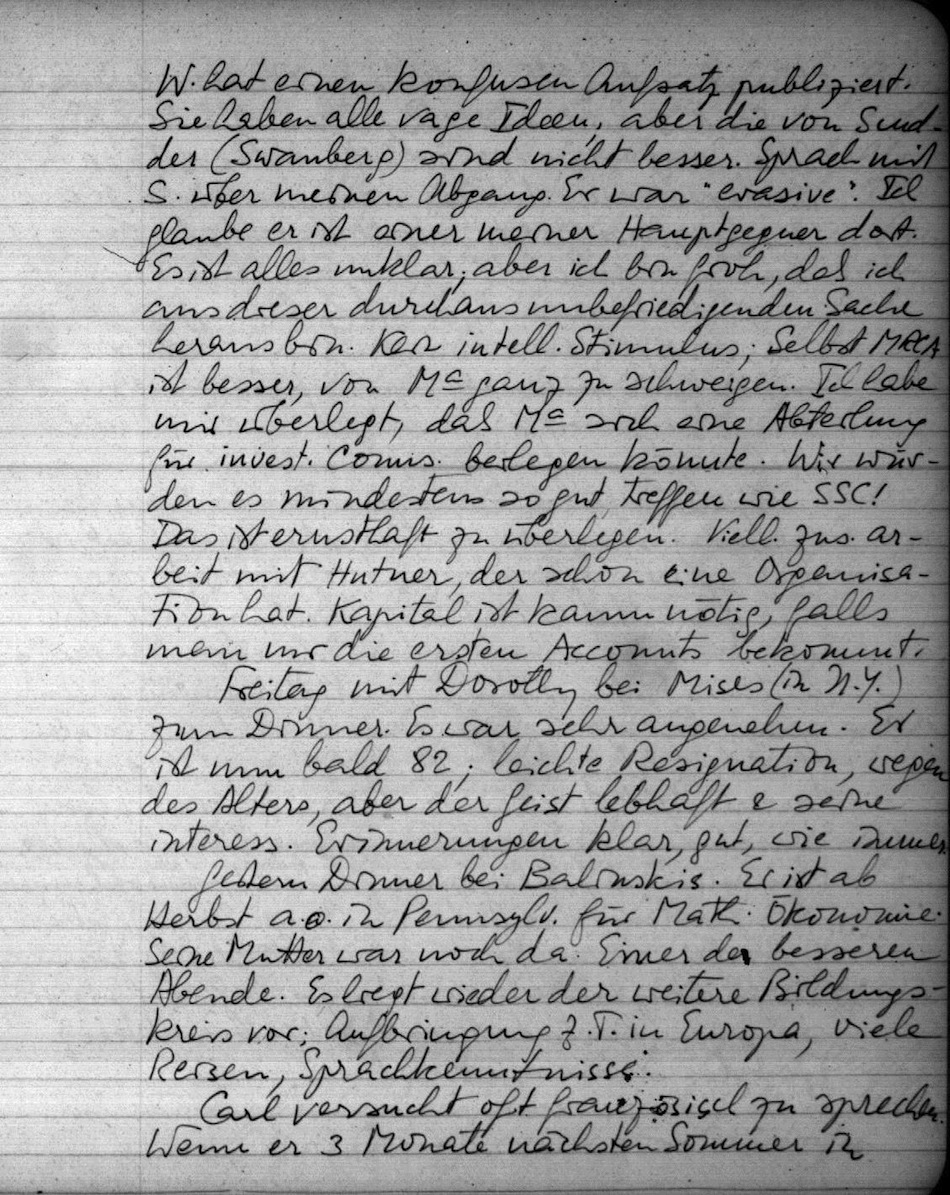 W. hat einen konfusen Aufsatz publiziert.
Sie haben alle vage Ideen, aber die von Sund-
der (Swanberg) sind nicht besser. Sprach mit
S. über meinen Abgang. Er war "evasive". Ich
glaube er ist einer meiner Hauptgegner dort.
Es ist alles unklar; aber ich bin froh, daß ich
aus dieser durchaus unbefriedigenden Sache
heraus bin. Kein intell. Stimulus; Selbst MRCA
ist besser, von Mc ganz zu schweigen. Ich habe
mir überlegt, daß Mc sich eine Abteilung
für invest. Couns. beilegen könnte. Wir wür-
den es mindestens so gut treffen wie SSC!
Das ist ernsthaft zu überlegen. Viell. zus. ar-
beit mit Hutner, der schon eine Organisa-
tion hat. Kapital ist kaum nötig, falls
man nur die ersten Accounts bekommt.
Freitag mit Dorothy bei Mises (in N.Y.)
zum Dinner. Es war sehr angenehm. Er
ist nun bald 82; leichte Resignation, wegen
des Alters, aber der Geist lebhaft & seine
interess. Erinnerungen klar, gut, wie immer.
Gestern Dinner bei Balinskis. Er ist ab
Herbst a.o. in Pennsylv. für Math. Ökonomie.
Seine Mutter war noch da. Einer der besseren
Abende. Es liegt wieder der weitere Bildungs-
kreis vor; Aufbringung z.T. in Europa, viele
Reisen, Sprachkenntnisse.
Carl versucht oft französisch zu sprechen.
Wenn er 3 Monate nächsten Sommer in